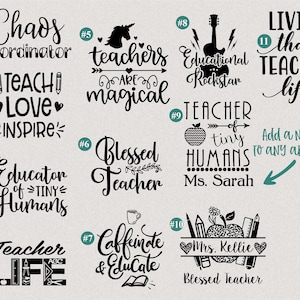 Chaos
Coordinator
TEACH
LOVE
INSPIRE
Educator
of TINY
Humans
Teacher
LIFE
#5
teachers
ARE
magical
#6
Blessed
Teacher
#7
Caffeinate
& EduCate
#8
Educational
Rockstar
#9
TEACHER
of
tiny
HUMANS
Ms. Sarah
#10
Mrs. Kellie
Blessed Teacher
11
LIVI
the
TEAC
life
Add a n
to any a